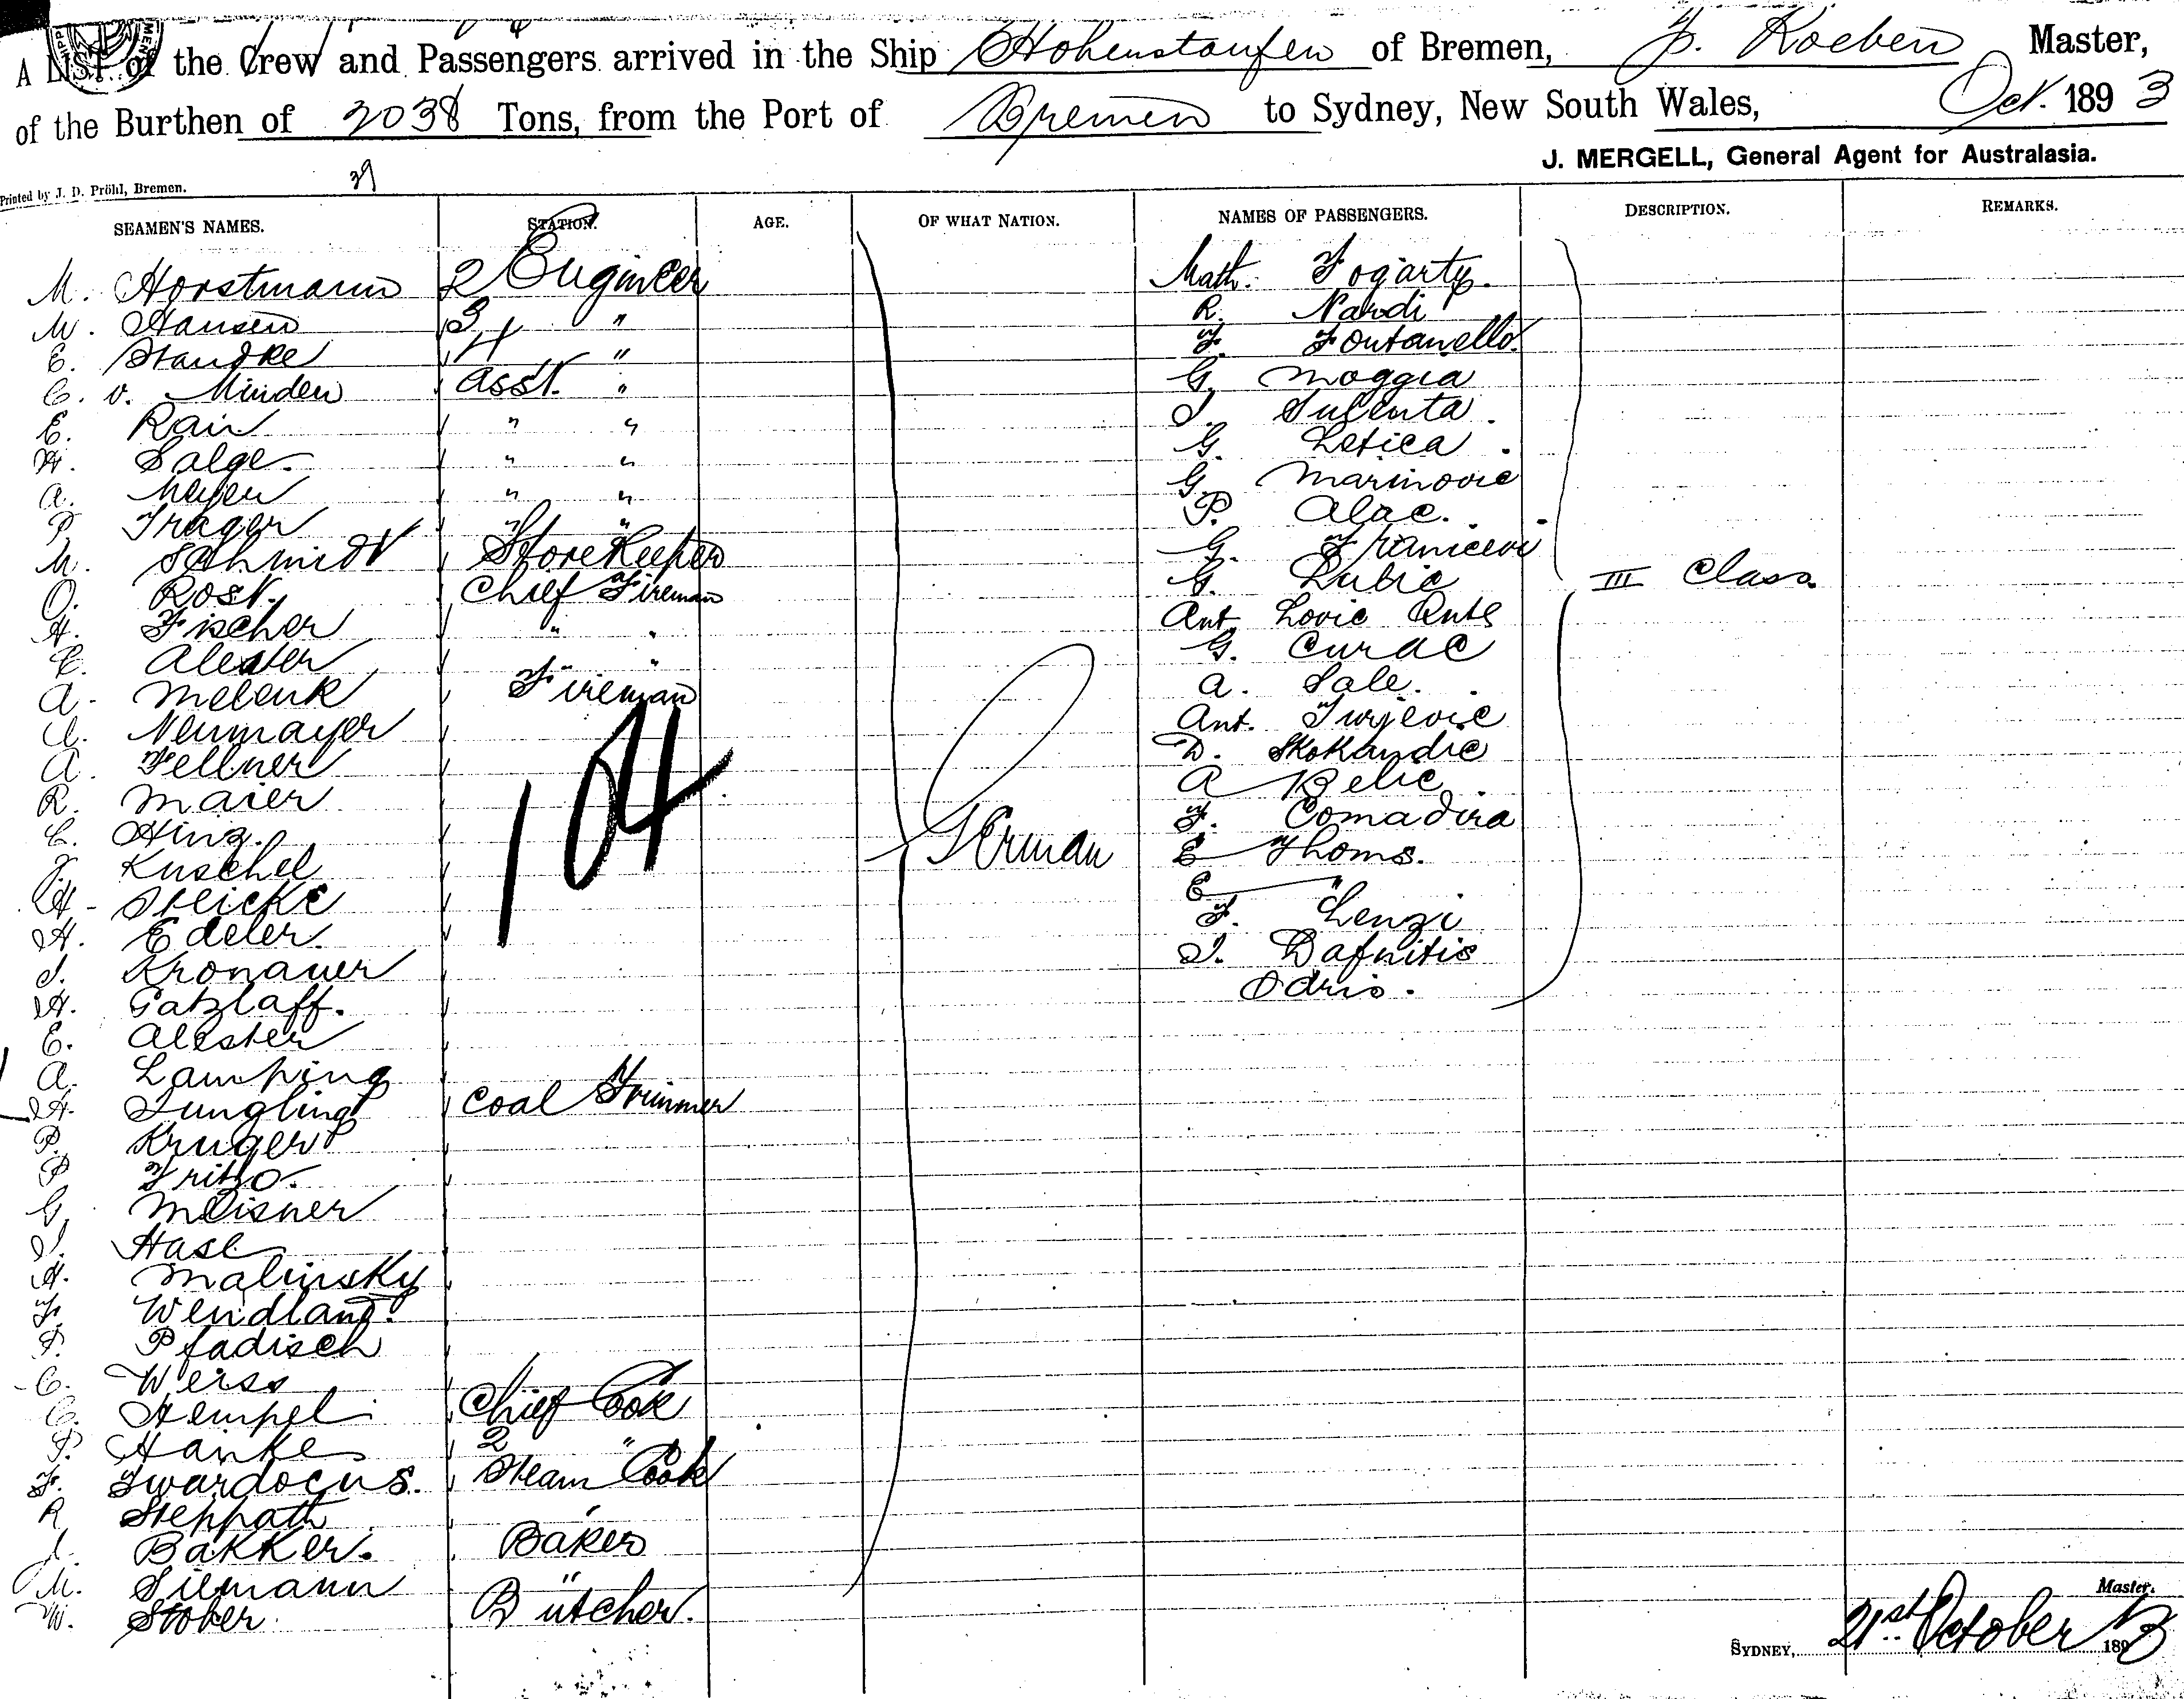 A LIST of the Crew and Passengers arrived in the Ship Hohenstaufen of Bremen, Koeben Master,
of the Burthen of 2038 Tons, from the Port of Bremen to Sydney, New South Wales, Oct. 1893
J. MERGELL, General Agent for Australasia.
Printed by J. D. Pröhl, Bremen.
39
SEAMEN'S NAMES. STATION. AGE. OF WHAT NATION. NAMES OF PASSENGERS. DESCRIPTION. REMARKS.
M. Horstmann 2 Engineer Math. Fogarty.
W. Hansen 3 " R. Nardi
E. Standke 4 " F. Fontanello.
C. v. Minden Asst. " G. Moggia
E. Rair " " J. Sulenta.
H. Salge. " " G. Letica.
A. Meyer " " G. Marinovic
P. Trager " " P. Alac.
M. Schmidt StoreKeeper G. Franicevi
O. Rost. Chief Fireman G. Rubic III Class.
H. Fischer " " Ant. Lovic Ante
E. Alester " " G. Curac
A. Melenk Fireman A. Sale.
Neumayer Ant. Jurjevic
A. Fellner D. Skokandic
R. Maier 104 A Belic.
C. Hinz. F. Comadira
J. Kuschel German E Thoms.
H. Steicke E "
H. Edeler. F. Lenzi
J. Kronauer J. Dafnitis
H. Gatzlaff. Odrio.
E. Alester
A. Lamping
H. Jungling Coal Trimmer
P. Kruger
P Fritzo.
G. Meisner
J. Hase
H. Malinsky
F. Wendland.
P. Pfadisch
C. Weiss
C. Hempel Chief Cook
P. Hanke 2 "
F. Twardocus. Steam Cook
R Steppath
J. Bakker. Baker
M. Siemann "
W. Stober Butcher.
Master.
SYDNEY, 21st October 1893